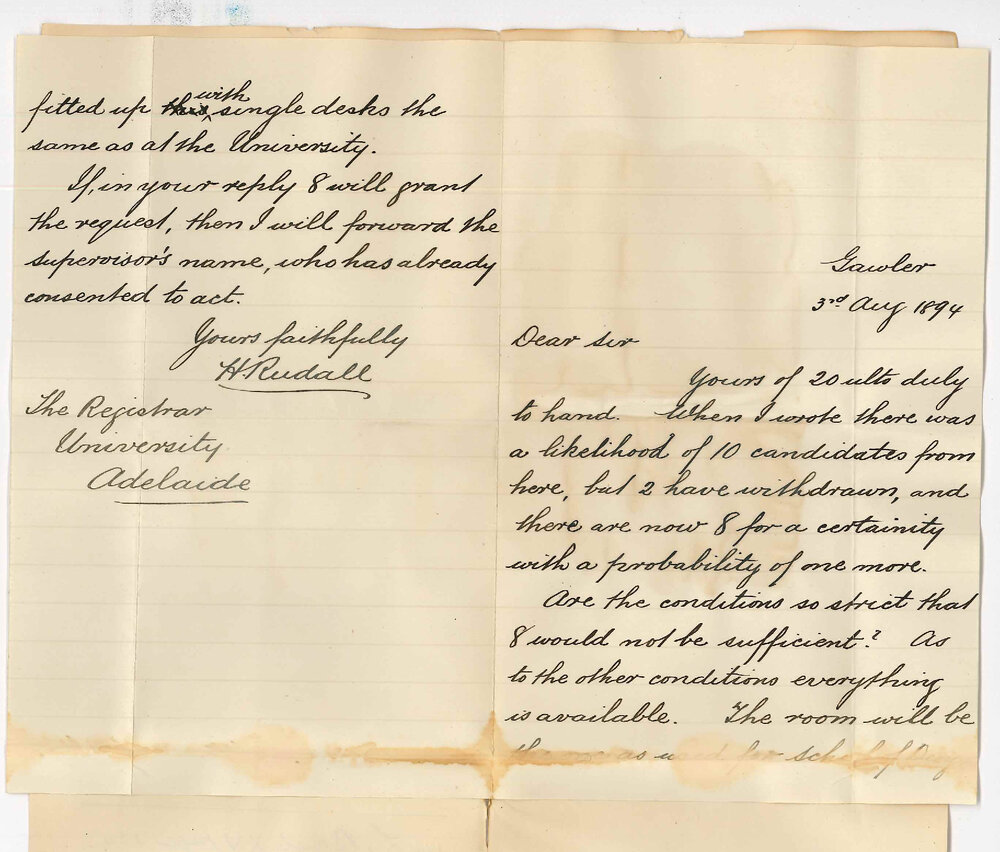 Gawler
3rd Aug 1894
Dear Sir
Yours of 20 ulto duly
to hand. When I wrote there was
a likelihood of 10 candidates from
here, but 2 have withdrawn, and
there are now 8 for a certainity
with a probability of one more.
Are the conditions so strict that
8 would not be sufficient? As
to the other conditions everything
is available. The room will be
as used for
fitted up with single desks the
same as at the University.
If, in your reply 8 will grant
the request, then I will forward the
supervisor's name, who has already
consented to act.
Yours faithfully
H Rudall
The Registrar
University
Adelaide